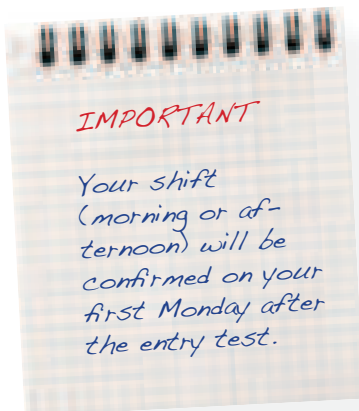 IMPORTANT
Your shift
(morning or af-
ternoon) will be
confirmed on your
first Monday after
the entry test.